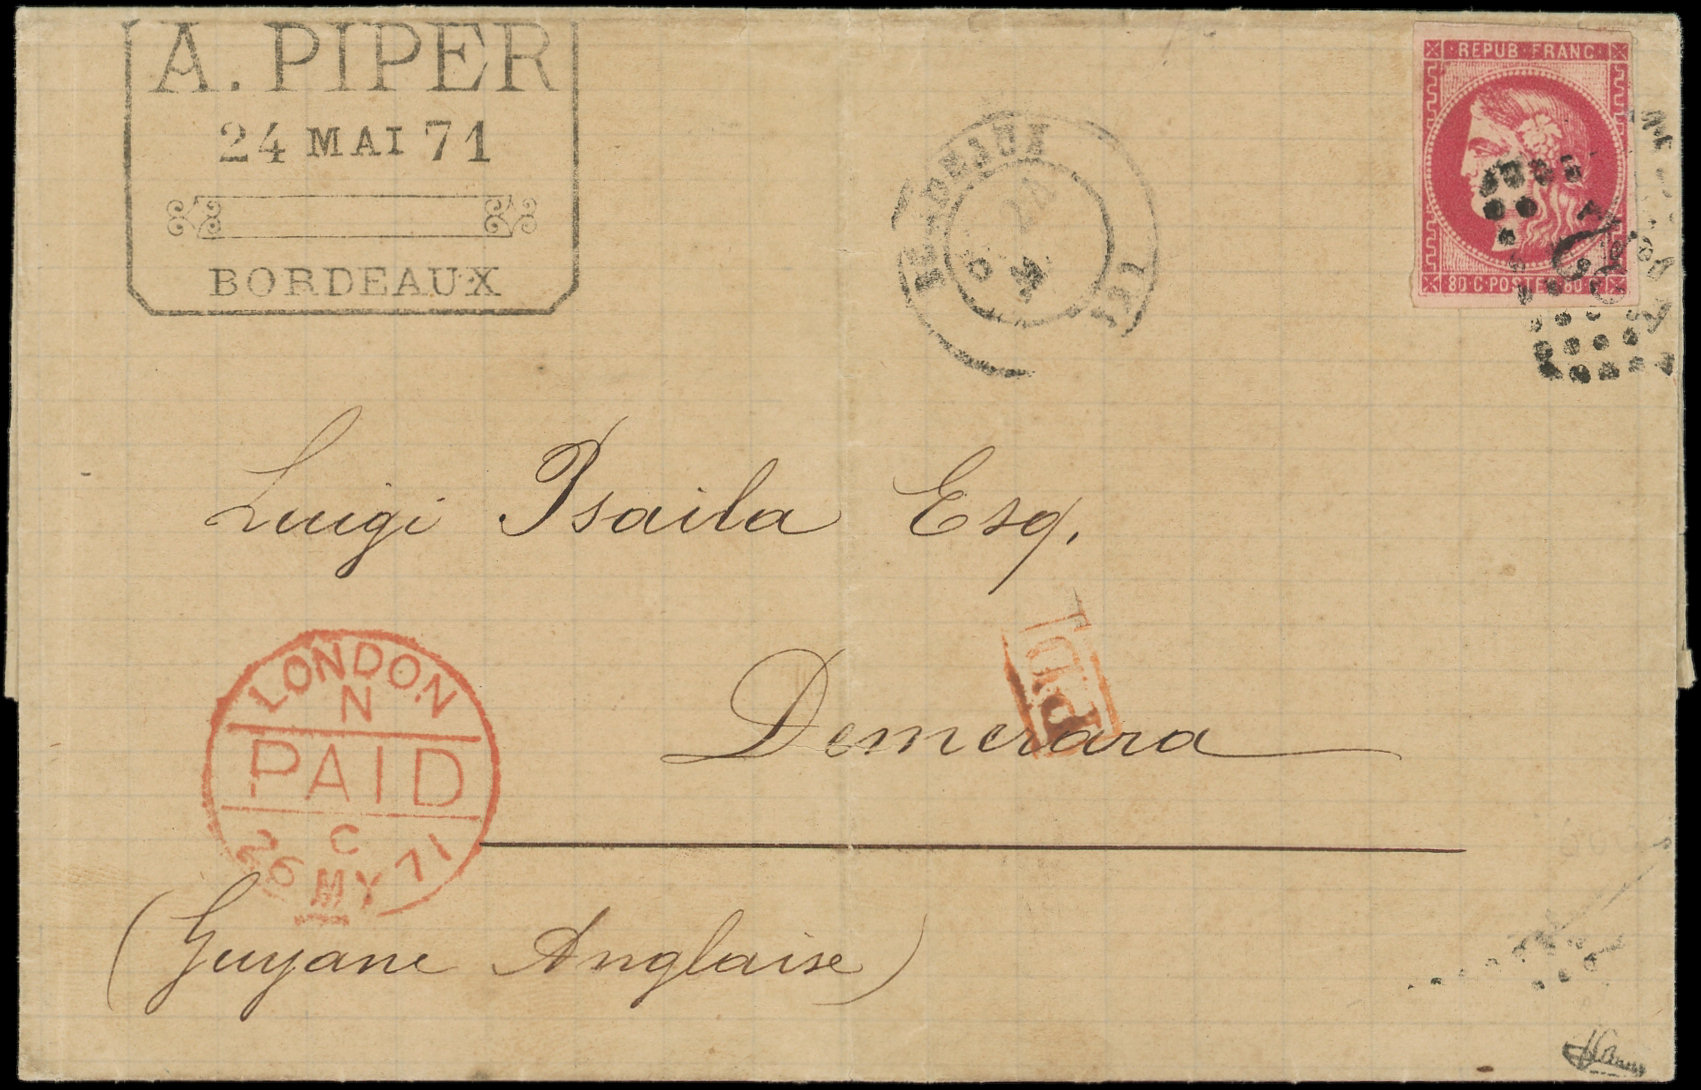 A. PIPER
24 MAI 71
BORDEAUX
BORDEAUX
REPUB·FRANC·
80 C·POSTE·80 C·
Luigi Psaila Esq.
Demerara
P.D.
LONDON
N
PAID
C
26 MY 71
(Guyane Anglaise)